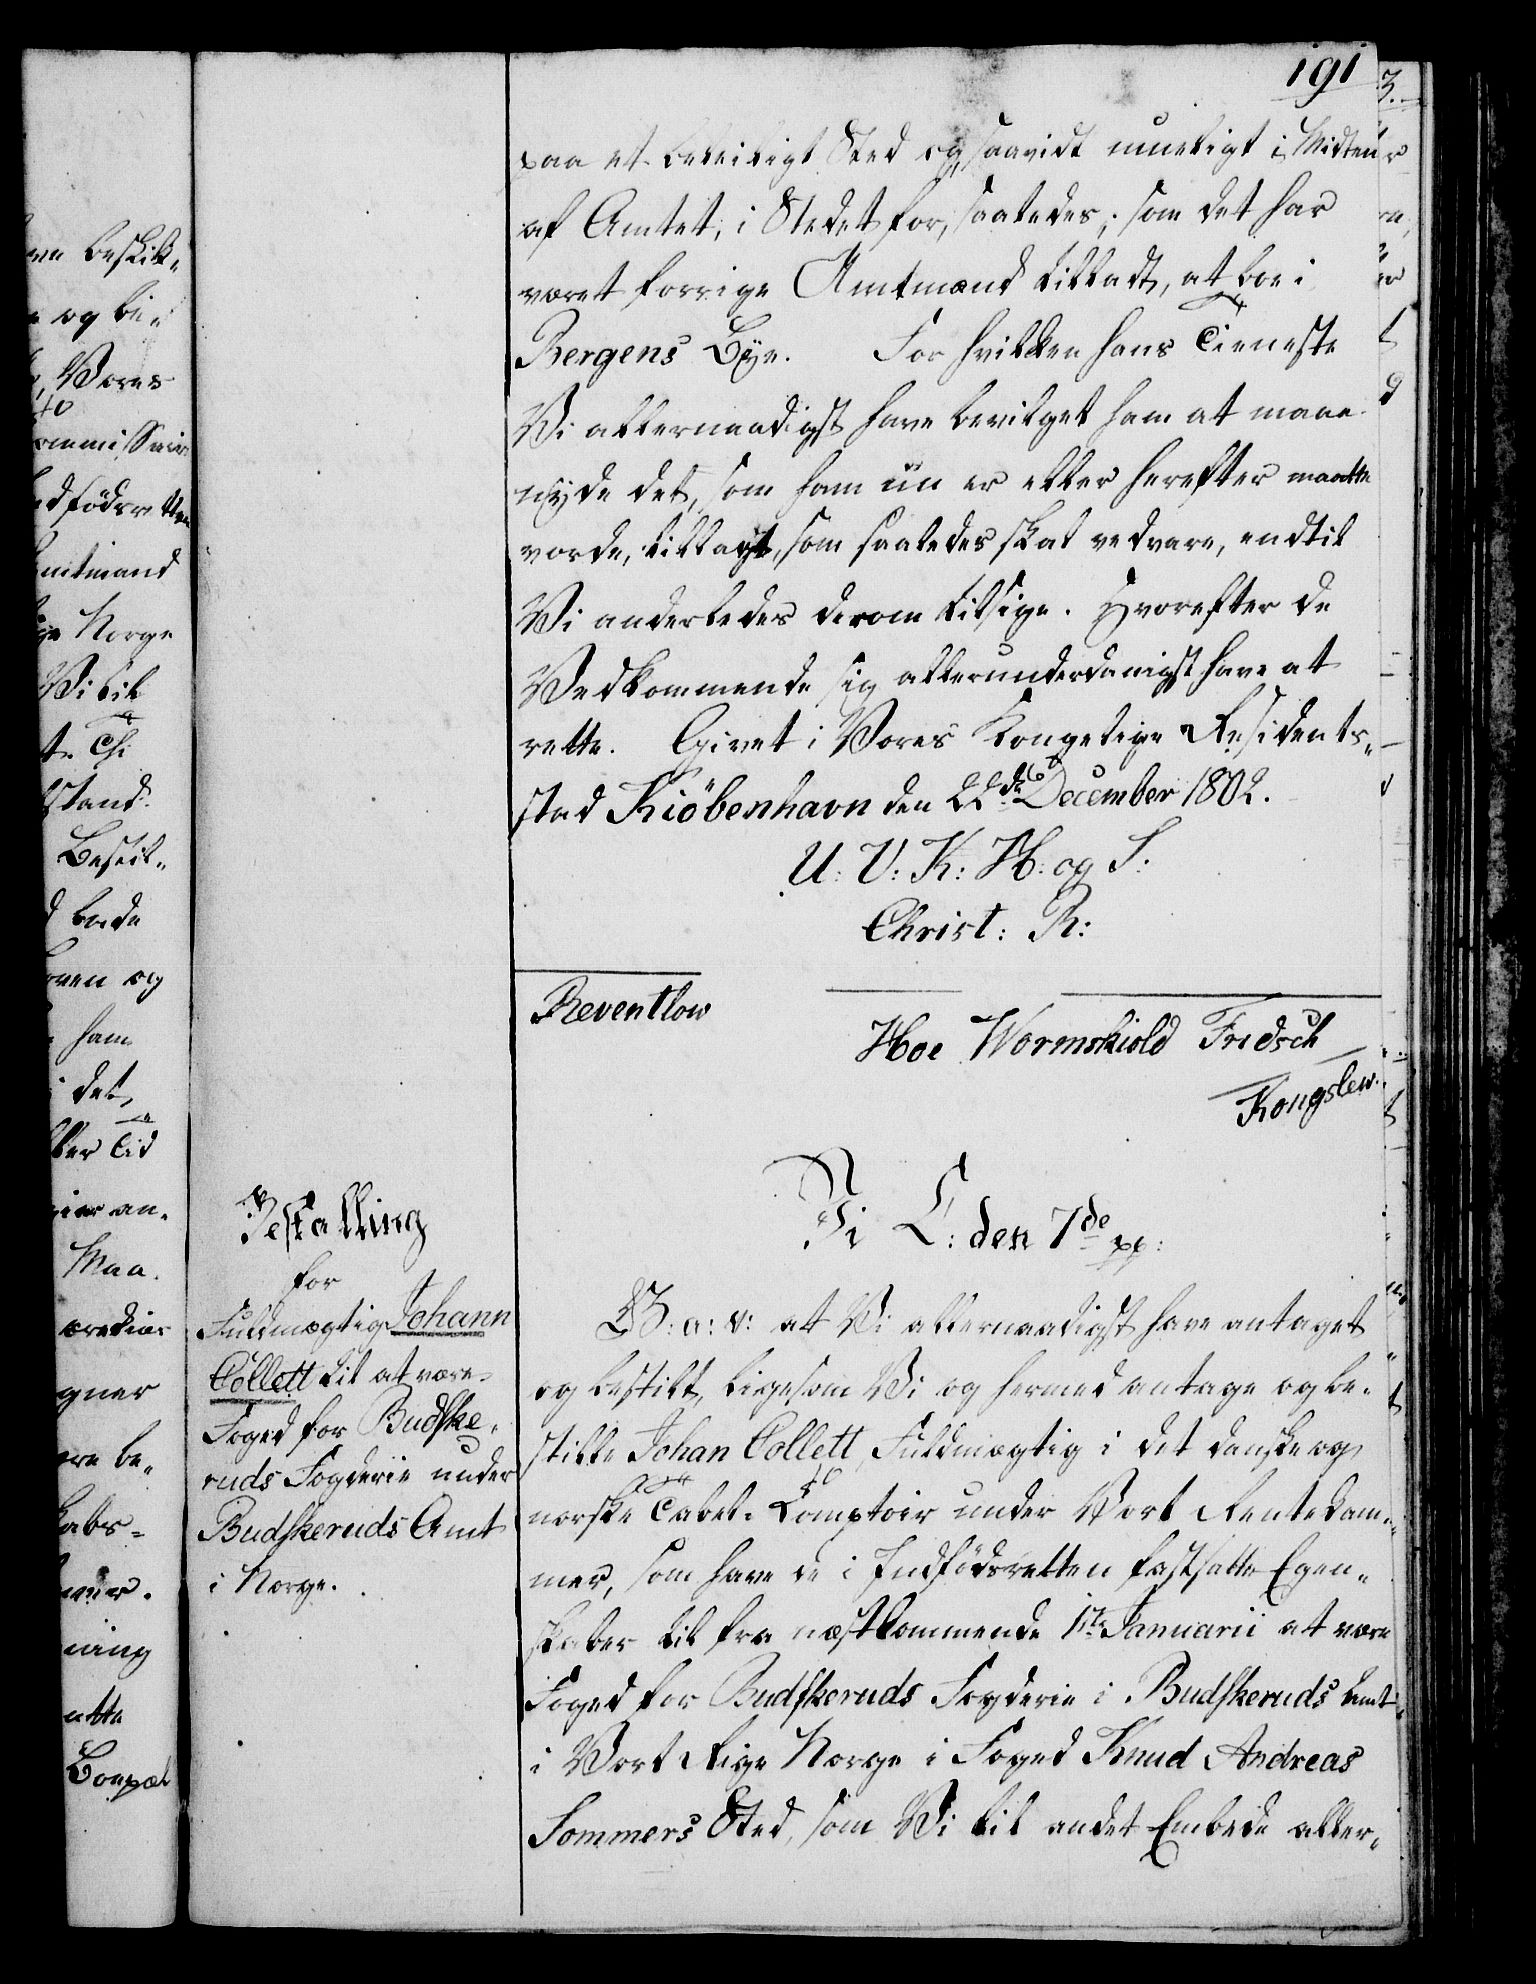 191
paa et beleiligt Sted og, saavidt mueligt i Midten
af Amtet, i Stedet for, saaledes, som det har
været forrige Amtmænd tilladt, at boe i
Bergens Bye. For hvilken hans Tieneste
Vi allernaadigst have bevilget ham at maae
nyde det, som ham nu er eller herefter maatte
vorde, tillagt, som saaledes skal vedvare, indtil
Vi anderledes derom tilsige. Hvorefter de
Vedkommende sig allerunderdanigst have at
rette. Givet i Vores Kongelige Residents-
stad Kiöbenhavn den 22de December 1802.
U: V: K: H: og S:
Christ: R:
Reventlow
Hoe Wormskiold Fridsch
Kongslew.
Bestalling
for
Fuldmægtig Johann
Collett til at være
Foged for Budske-
ruds Fogderie under
Budskeruds Amt
i Norge.
Vi C: den 7de pp:
G: a: v: at Vi allernaadigst have antaget
og bestilt, ligesom Vi og hermed antage og be-
stille Johan Collett, Fuldmægtig i det danske og
norske Tabel-Comptoir under Vort Rentekam-
mer, som have de i Indfödsretten fastsatte Egen-
skaber til fra næstkommende 1ste Januarii at være
Foged for Budskeruds Fogderie i Budskeruds Amt
i Vort Rige Norge i Foged Knud Andreas
Sommers Sted, som Vi til andet Embede aller-